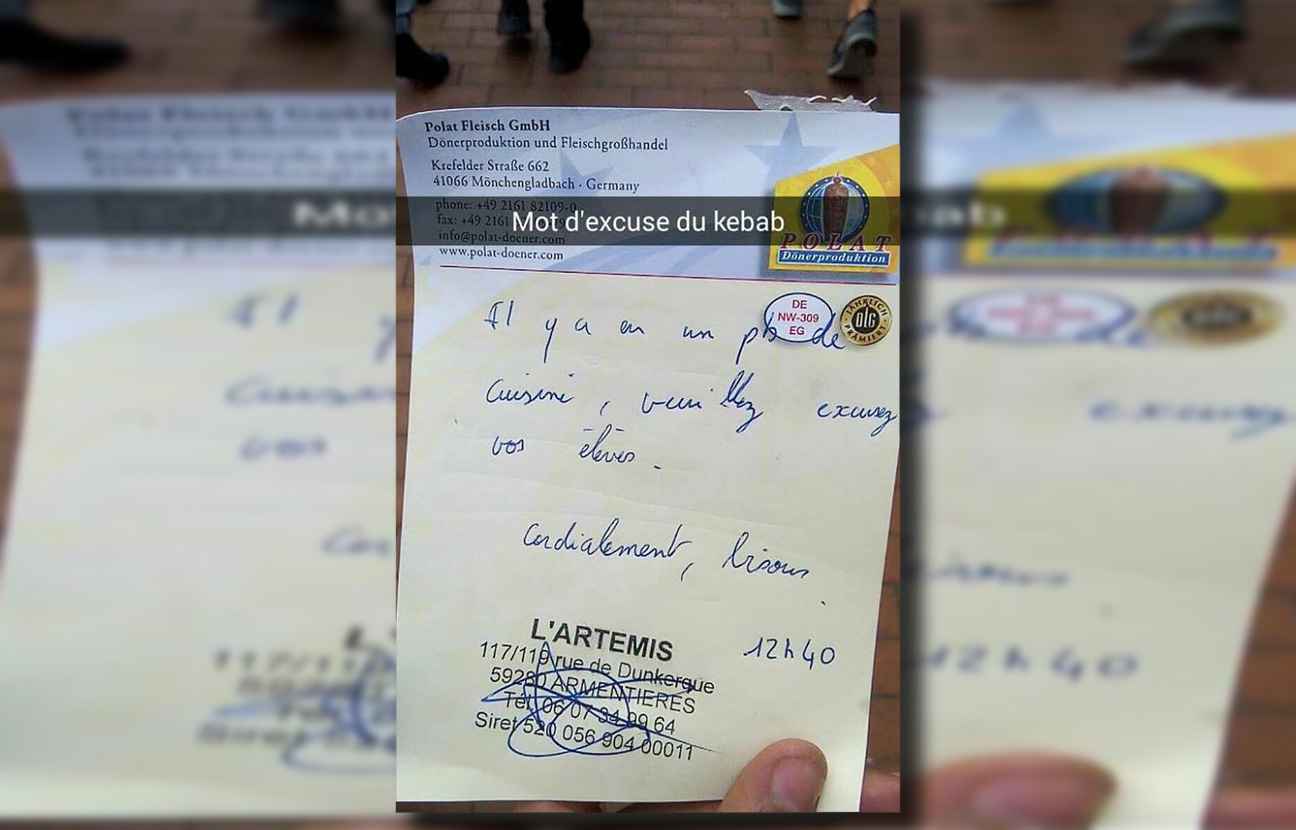 Polat Fleisch GmbH
Dönerproduktion und Fleischgroßhandel
Krefelder Straße 662
41066 Mönchengladbach · Germany
phone: +49 2161 82109-0
fax: +49 2161
info@polat-doener.com
www.polat-doener.com
Mot d'excuse du kebab
POLAT
Dönerproduktion
DE
NW-309
EG
JÄHRLICH
DLG
PRÄMIERT
Il y a eu un pb de
cuisine, veuillez excusez
vos élèves.
Cordialement, bisous.
12h40
L'ARTEMIS
117/119 rue de Dunkerque
59280 ARMENTIERES
Tél. 06 07 34 99 64
Siret 520 056 904 00011